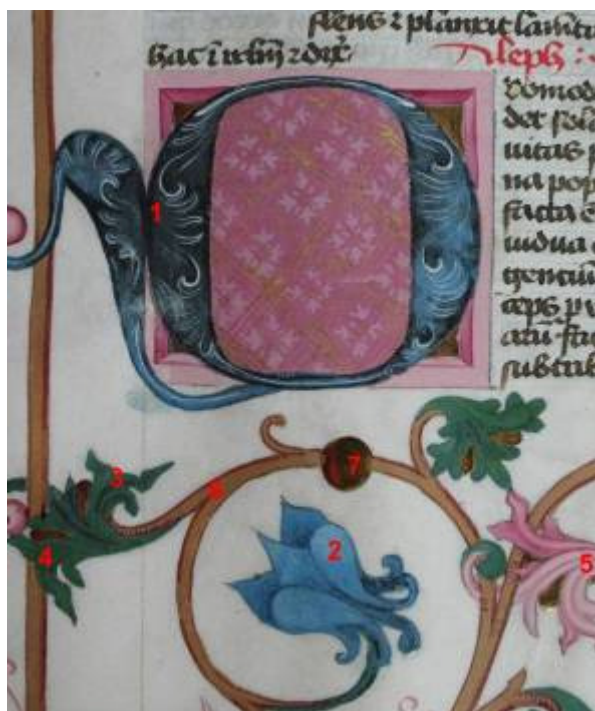 flens ⁊ planxit lamēta
hac ī irlm̄ ⁊ dix̄ Aleph :
uomod
det sola
uitas p
na pop
facta e
uidua
gentiū
ceps p
arū fa
sub trib
1
7
3
6
2
4
5